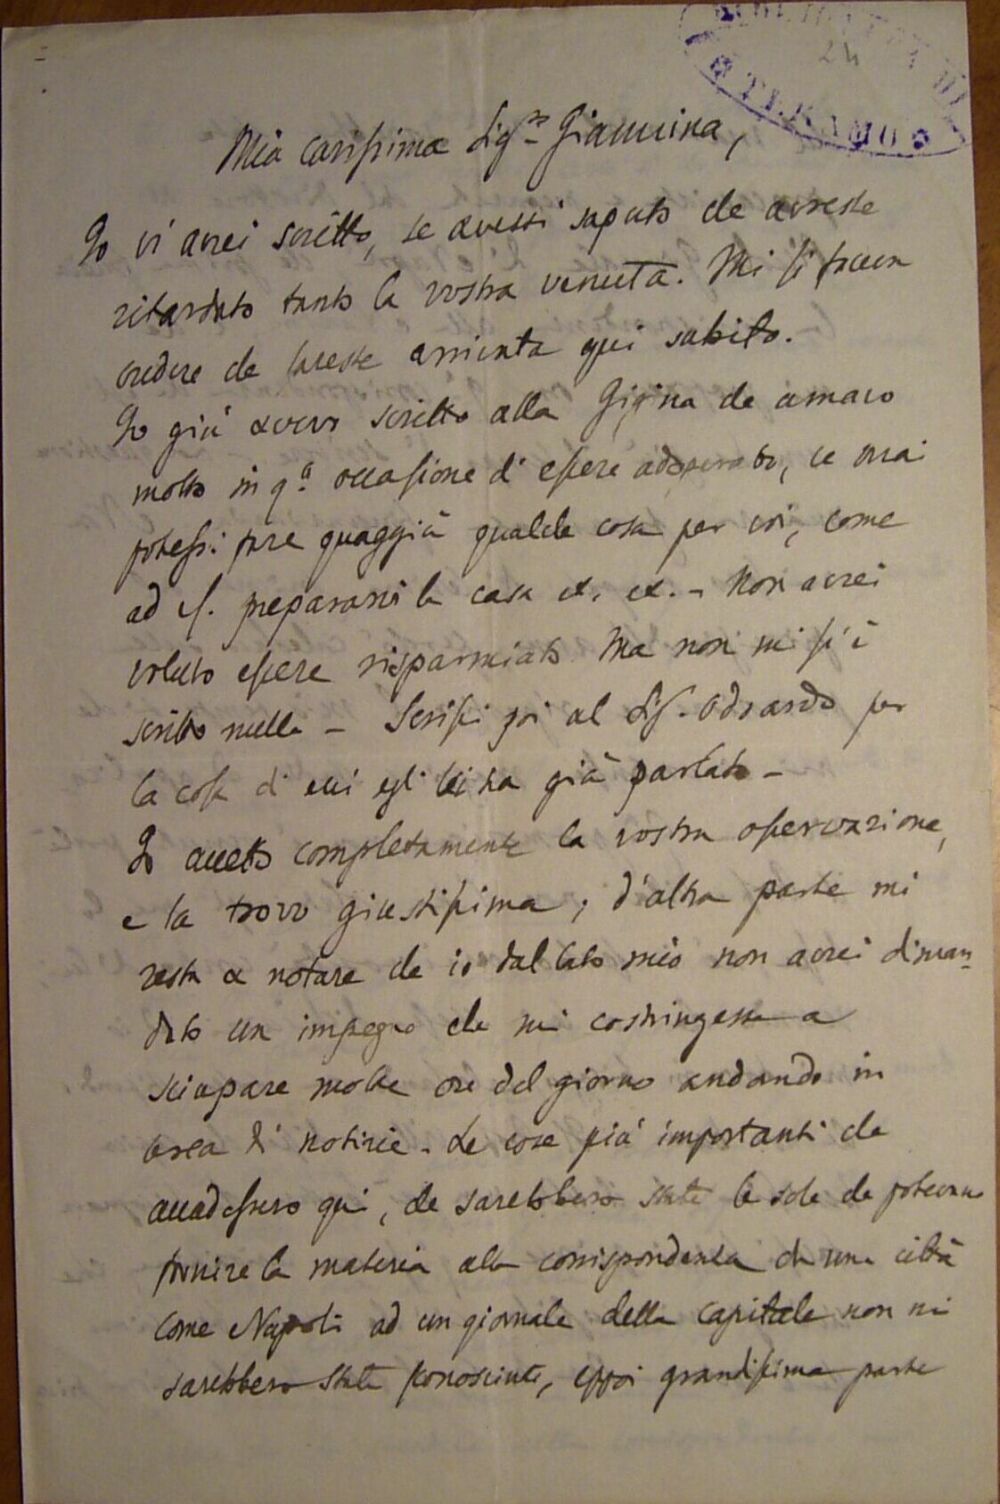 24
TERAMO
Mia carissima Sig.ra Giannina,
Io vi avrei scritto, se avessi saputo che avreste
ritardato tanto la vostra venuta. Mi si facea
credere che sareste arrivata qui subito.
Io già avevo scritto alla Gigina che amavo
molto in q.a occasione di essere adoperato, se mai
potessi fare quaggiù qualche cosa per voi, come
ad es. prepararvi la casa ec. ec. – Non avrei
voluto essere risparmiato. Ma non mi si è
scritto nulla – Scrissi poi al Sig. Odoardo per
la cosa di cui egli vi ha già parlato –
Io accetto completamente la vostra osservazione,
e la trovo giustissima; d'altra parte mi
resta a notare che io dal lato mio non avrei diman-
dato un impegno che mi costringesse a
sciupare molte ore del giorno andando in
cerca di notizie. Le cose più importanti che
accadessero qui, che sarebbero state le sole che potevano
fornire la materia alla corrispondenza da una città
come Napoli ad un giornale della capitale non mi
sarebbero state sconosciute, eppoi grandissima parte